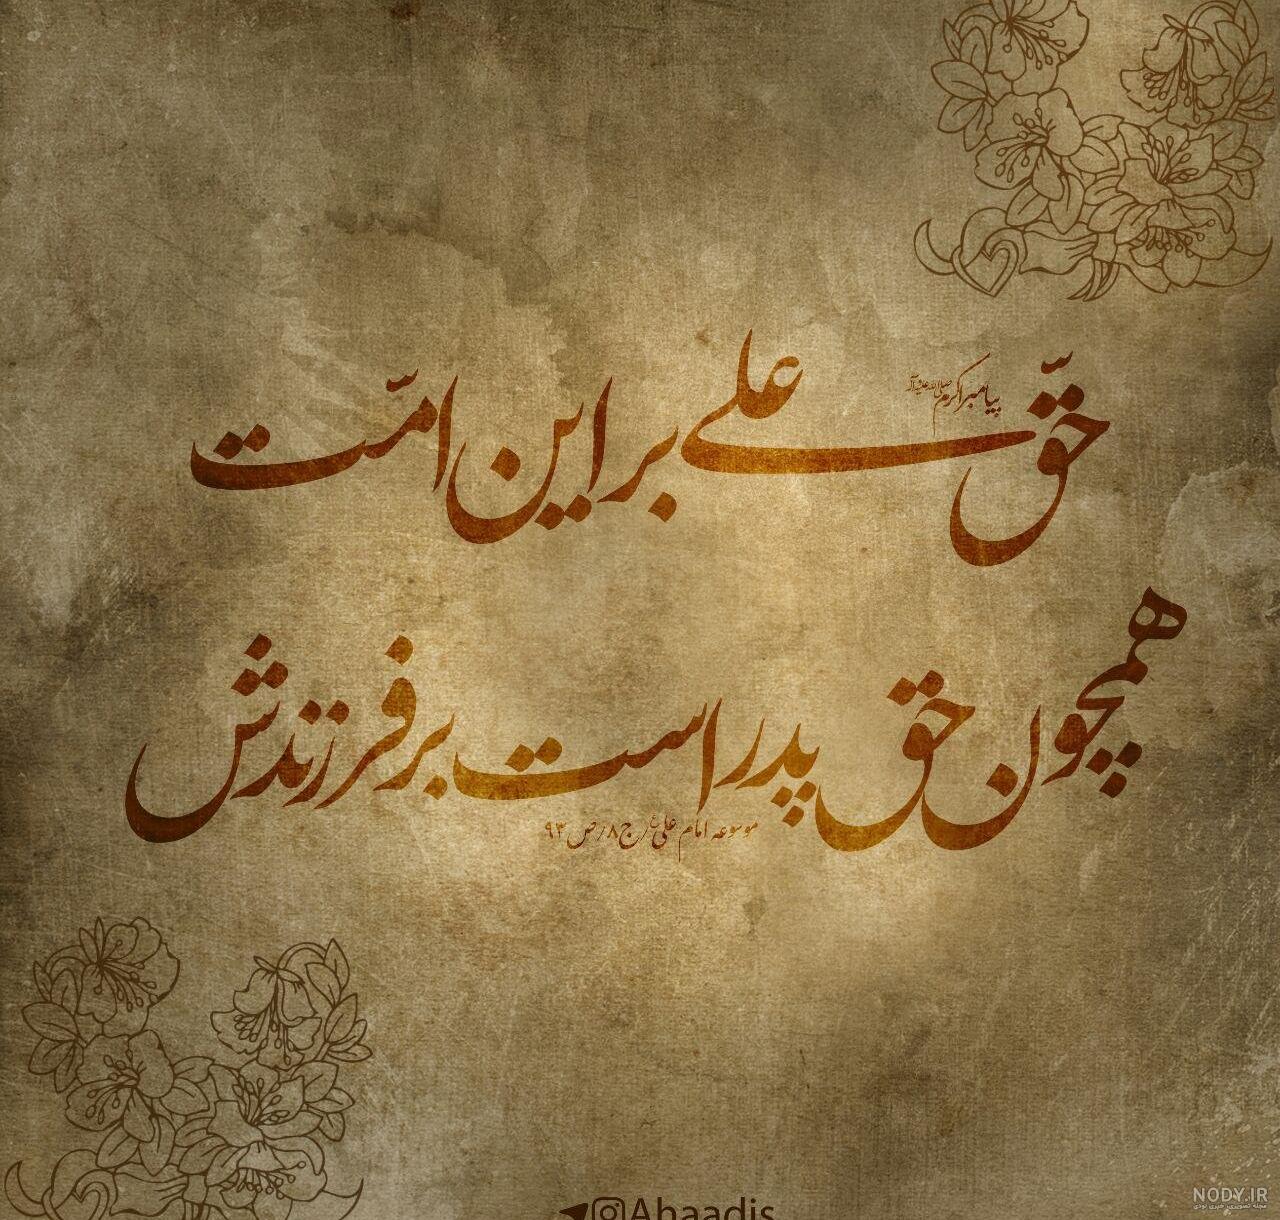 پیامبر اکرم صلی الله علیه و آله
حقّ علی بر این امّت
همچون حق پدر است بر فرزندش
موسوعه امام علی ع/ج۸/ص۹۳
Abaadis
NODY.IR
مجله تصویری، خبری نودی